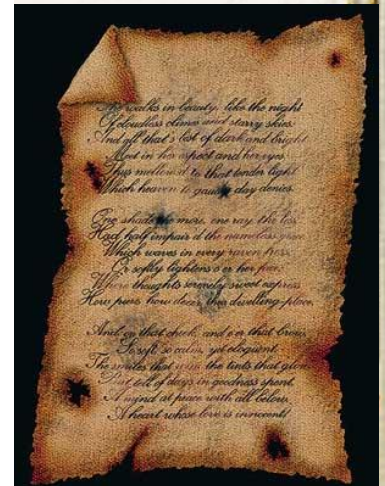 She walks in beauty, like the night
Of cloudless climes and starry skies
And all that's best of dark and bright
Meet in her aspect and her eyes
Thus mellow'd to that tender light
Which heaven to gaudy day denies.
One shade the more, one ray the less
Had half impair'd the nameless grace
Which waves in every raven tress
Or softly lightens o'er her face;
Where thoughts serenely sweet express
How pure, how dear their dwelling-place.
And on that cheek, and o'er that brow,
So soft, so calm, yet eloquent,
The smiles that win, the tints that glow,
But tell of days in goodness spent,
A mind at peace with all below,
A heart whose love is innocent!